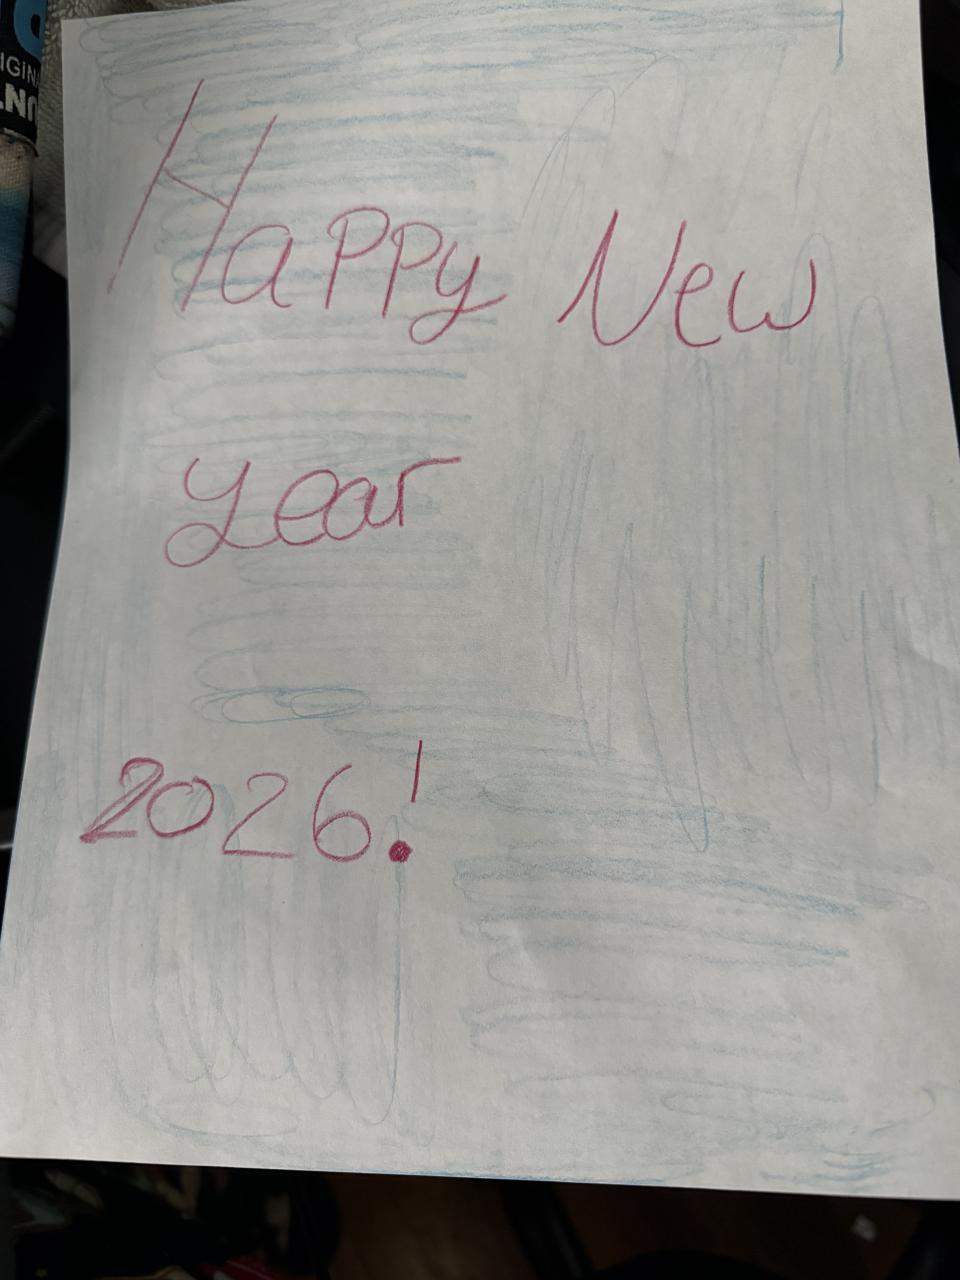 Happy New
year
2026!